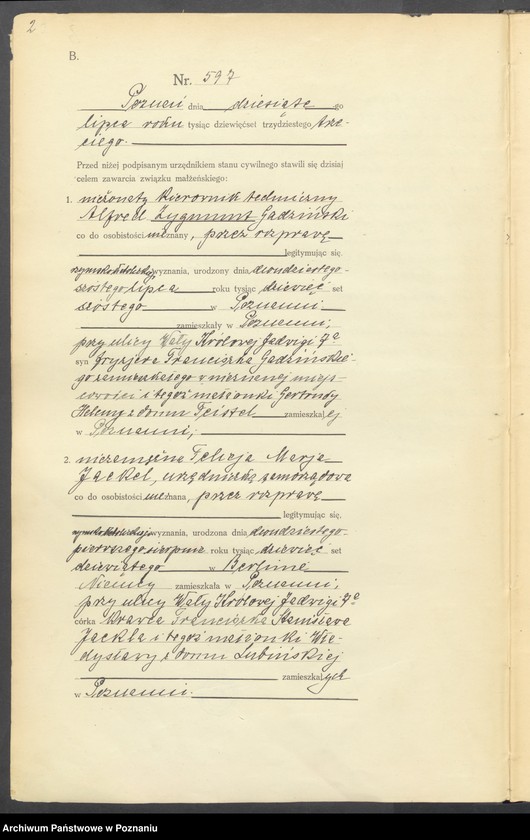 2
B.
Nr. 597
Poznań dnia dziesiąte go
lipca roku tysiąc dziewięćset trzydziestego trze-
ciego.
Przed niżej podpisanym urzędnikiem stanu cywilnego stawili się dzisiaj
celem zawarcia związku małżeńskiego:
1. nieżonaty kierownik techniczny
Alfred Zygmunt Gadziński
co do osobistości nieznany, przez rozprawę
legitymując się.
rzymskokatolickiego wyznania, urodzony dnia dwudziestego-
szóstego lipca roku tysiąc dziewięć set
szóstego w Poznaniu
zamieszkały w Poznaniu,
przy ulicy Wały Królowej Jadwigi 7a
syn fryzjera Franciszka Gadzińskie-
go zamieszkałego w nieznanej miejs-
cowości i tegoż małżonki Gertrudy
Heleny z domu Teistel zamieszkał ej
w Poznaniu;
2. niezamężna Felicja Marja
Jackel, urzędniczka samorządowa
co do osobistości nieznana, przez rozprawę
legitymując się.
rzymskokatolickiego wyznania, urodzona dnia dwudziestego-
pierwszego sierpnia roku tysiąc dziewięć set
dziewiątego w Berlinie
Niemcy zamieszkała w Poznaniu,
przy ulicy Wały Królowej Jadwigi 7a
córka krawca Franciszka Stanisława
Jackla i tegoż małżonki Wła-
dysławy z domu Lubińskiej
zamieszkał ych
w Poznaniu.
Archiwum Państwowe w Poznaniu